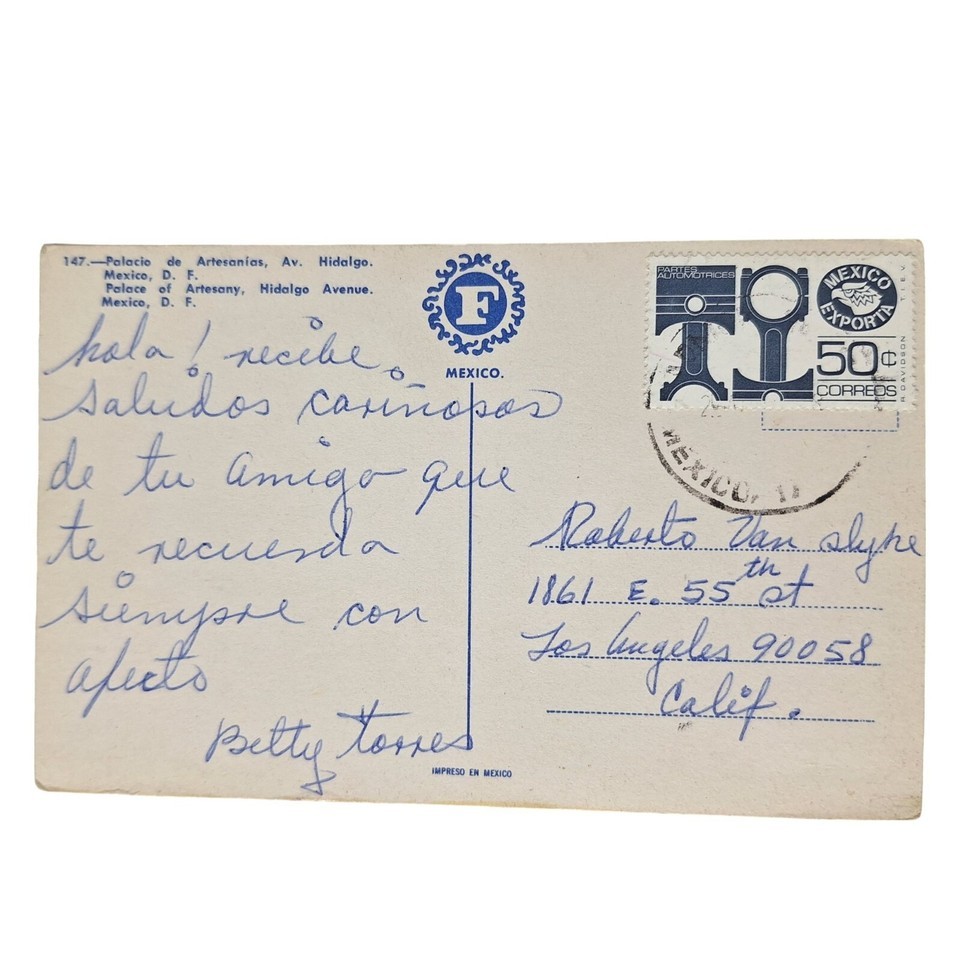 147.—Palacio de Artesanías, Av. Hidalgo.
Mexico, D. F.
Palace of Artesany, Hidalgo Avenue.
Mexico, D. F.
F
MEXICO.
hola! recibe
saludos cariñosos
de tu amiga que
te recuerda
siempre con
afecto
Betty Torres
IMPRESO EN MEXICO
PARTES
AUTOMOTRICES
MEXICO
EXPORTA
50¢
CORREOS
R. DAVIDSON
T.I.E.V.
MEXICO, 17
Roberto Van Slyke
1861 E. 55th st
Los Angeles 90058
Calif.